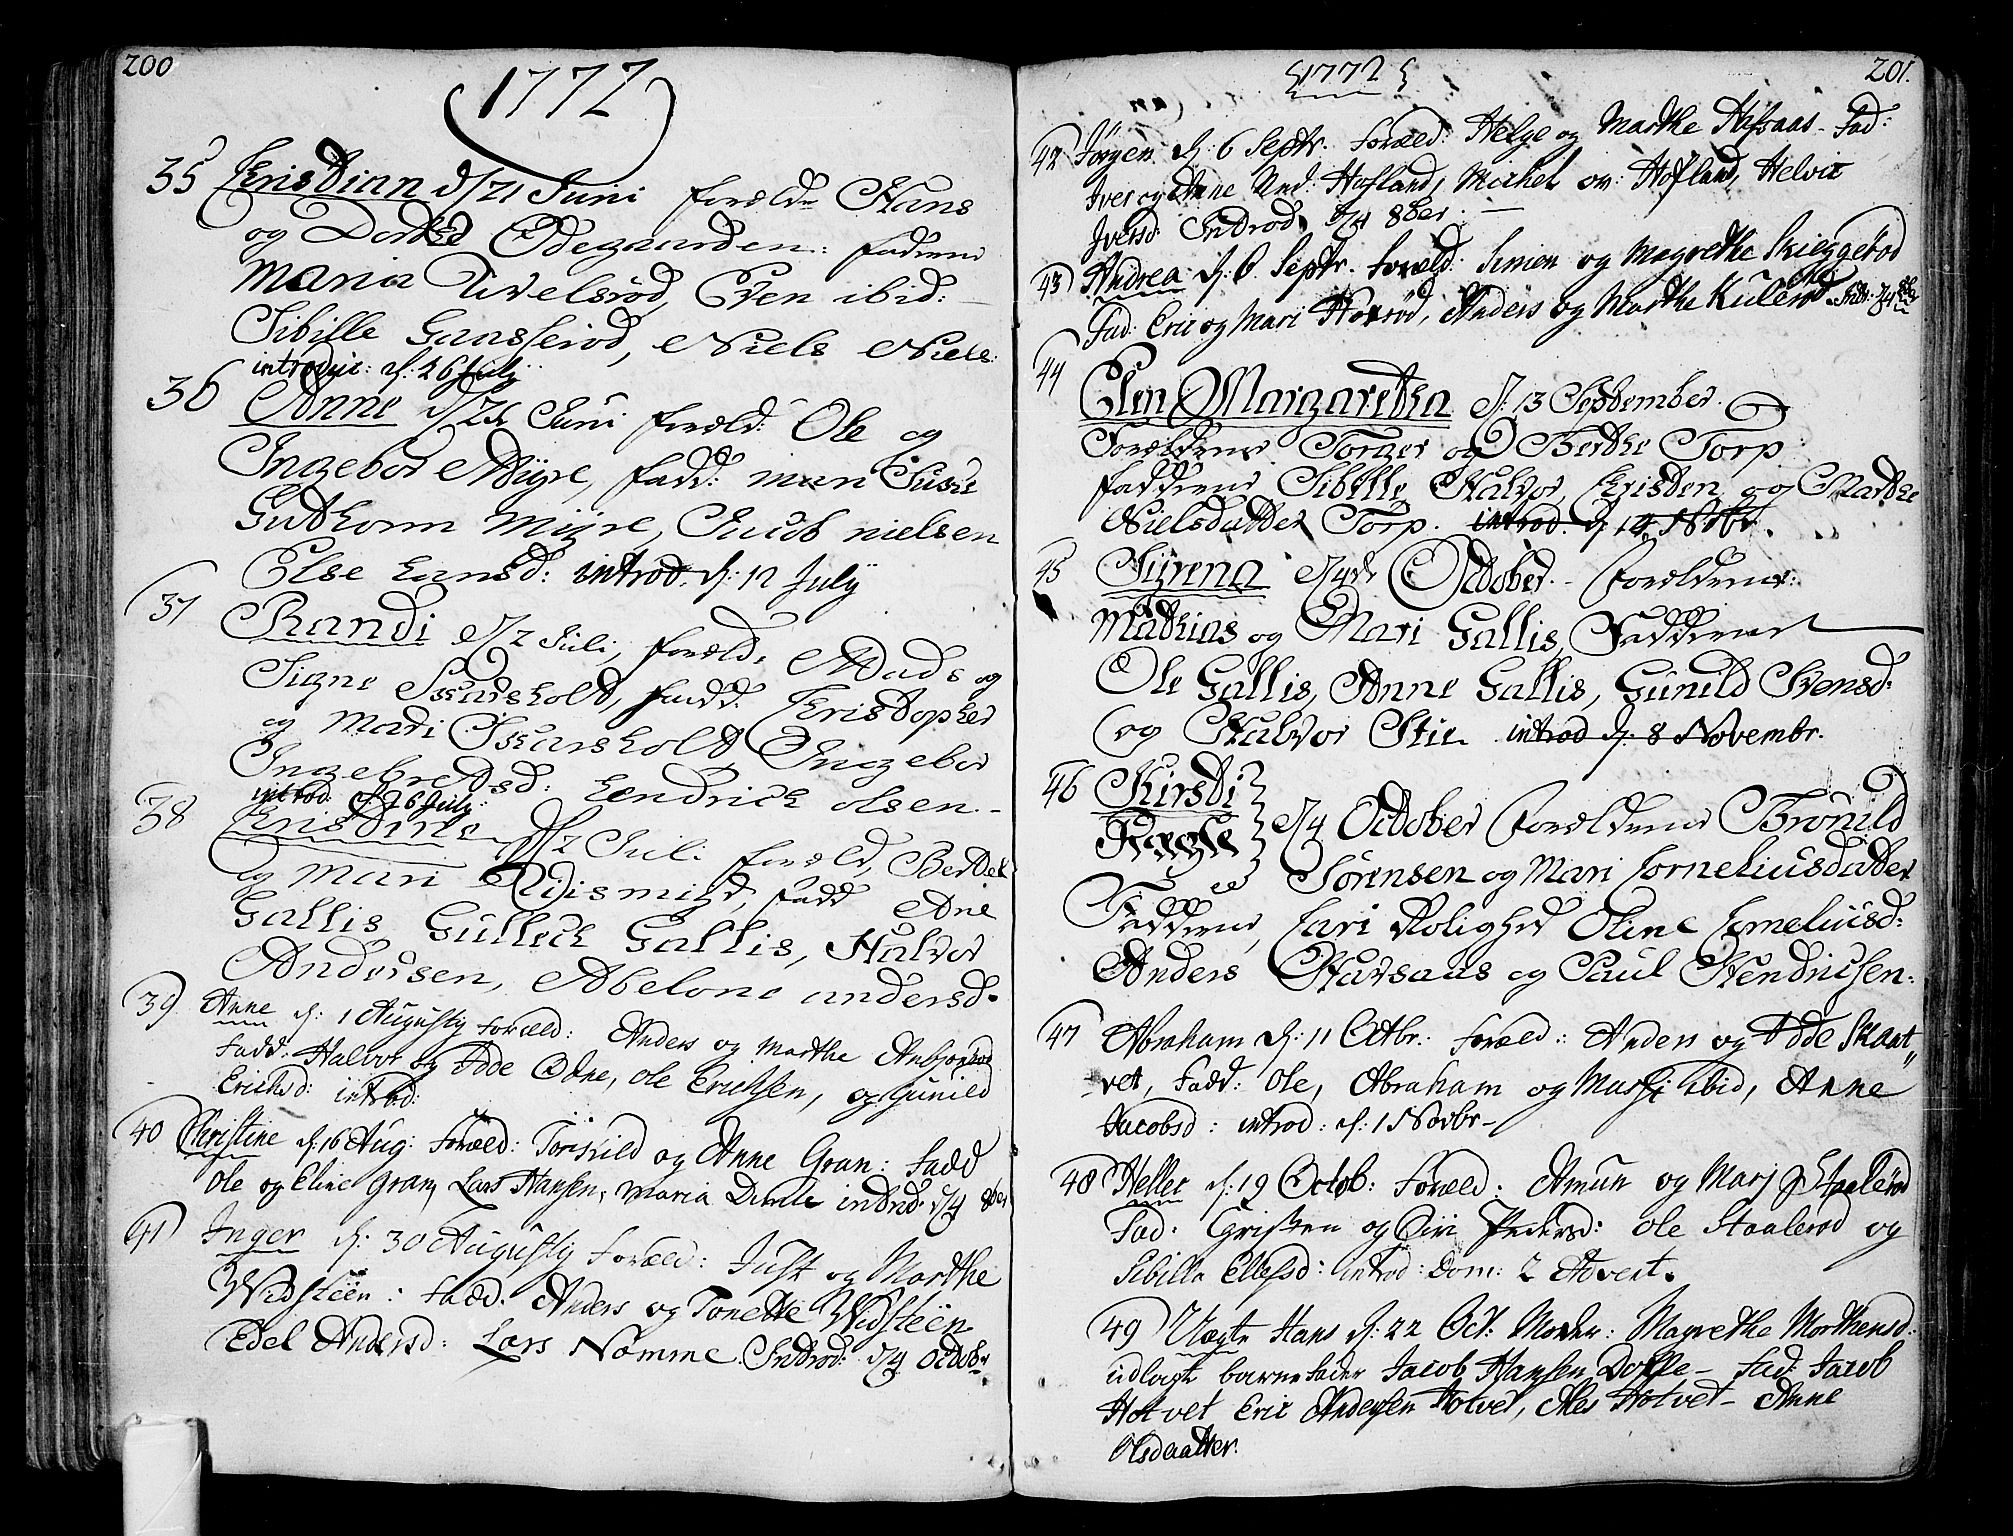 200
1772
35 Kristian d/21 Juni foreld: Hans
og Dorthe Ødegaarden: fadrene
Maria Tivelsrød, Even ibid:
Sibille Gaasserød, Niels Niels:
introduc: d: 26 July
36 Anne d/21 Juni foreld: Ole og
Ingebor Myre, fadd: man Susie
Guthorm Myre, Jacob nielsen
Else Hansd: introd. d: 12 July
37 Randi d/2 Juli, foreld: Mads og
Signe Skarsholt, fadd: Kristopher
og Mari Skarsholt, Ingebor
Ingebretsd: Hendrich olsen -
introd: d: 26 July:
38 Kristine d/2 Juli foreld, Berthel
og Mari Edismigd, fadd Ane
Gallis Gulleck Gallis, Halvor
Andersen, Abelone andersd.
39 Anne d: 1 Augusty foræld: Anders og Marthe
Fadd: Halvor og Odne, Ole Erichsen, og Gunild
Ericksd: introd:
40 Christine d: 16 Aug: Foræld: Toriskild og Anne Gran: Fadd
Ole og Eline Gran, Lars Hansen, Maria Dunle introd: d/4 8ber
41 Inger d: 30 Augusty Foræld: Just og Marthe
Widsteen: Fadd: Anders og Tonette Widsteen
Edel Andersd: Lars Nomme. Introd: d/4 Octobr
201.
1772
42 Jørgen d: 6 Septr. Foræld: Helge og Marthe Fad:
Iver og Anne Hofland, Michel Hofland, Helvic
Iversd: Introd d/4 8ber. —
43 Andrea d: 6 Septr. Foræld: Simen og Magrethe Skieggerød
Fad: Eric og Mari Anders og Marthe Kulerød Intr: d/4 8br
44 Elen Margaretha d: 13 September.
Foreldrene Torger og Berthe Torp:
faddrene Sibille, Halvor, Kristen og Marthe
Nielsdatter Torp. introd. d: 14 Nobr.
45 Sirena d/4de October - Foreldrene:
Mathias og Mari Gallis, Faddrene
Ole Gallis, Anne Gallis, Gunild Svensd:
og Halvor Stie introd d: 8 Novembr.
46 Kirsti d/4 October foreldrene Brønild
Sørensen og Mari Corneliusdatter
Faddrene, Kari Rolighed Oline Corneliusd:
Anders Harsaas og Paul Hendricksen.
47 Abraham d: 11 Octbr.: Foræld: Anders og Odde Skaat"
vet, Fadd: Ole, Abraham og Marji ibid, Anne
Jacobsd: introd: d: 1 Novbr-
48 Helle d: 19 Octob: Foræld: Amun og Marj Staalerød
Fad: Cristen og Siri Pedersd: Ole Staalerød og
Sibilla Ellefsd: introd: Dom: 2 Advent.
49 Uægte Hans d: 22 Oct: Moder: Magrethe Morthensd:
udlagt barnefader Jacob Hansen Dolpe - Fad: Jacob
Hotvet Eric Andersen Hotvet, Ales Hotvet - Anne
Olsdaatter.